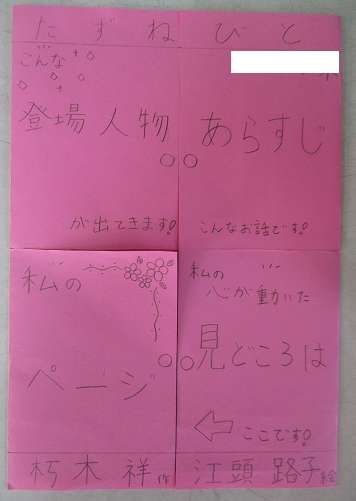 たずねびと
こんな
登場人物
が出てきます!
あらすじ
こんなお話です!
私の
ページ
私の
心が動いた
見どころは
ここです!
朽木祥作
江頭路子絵